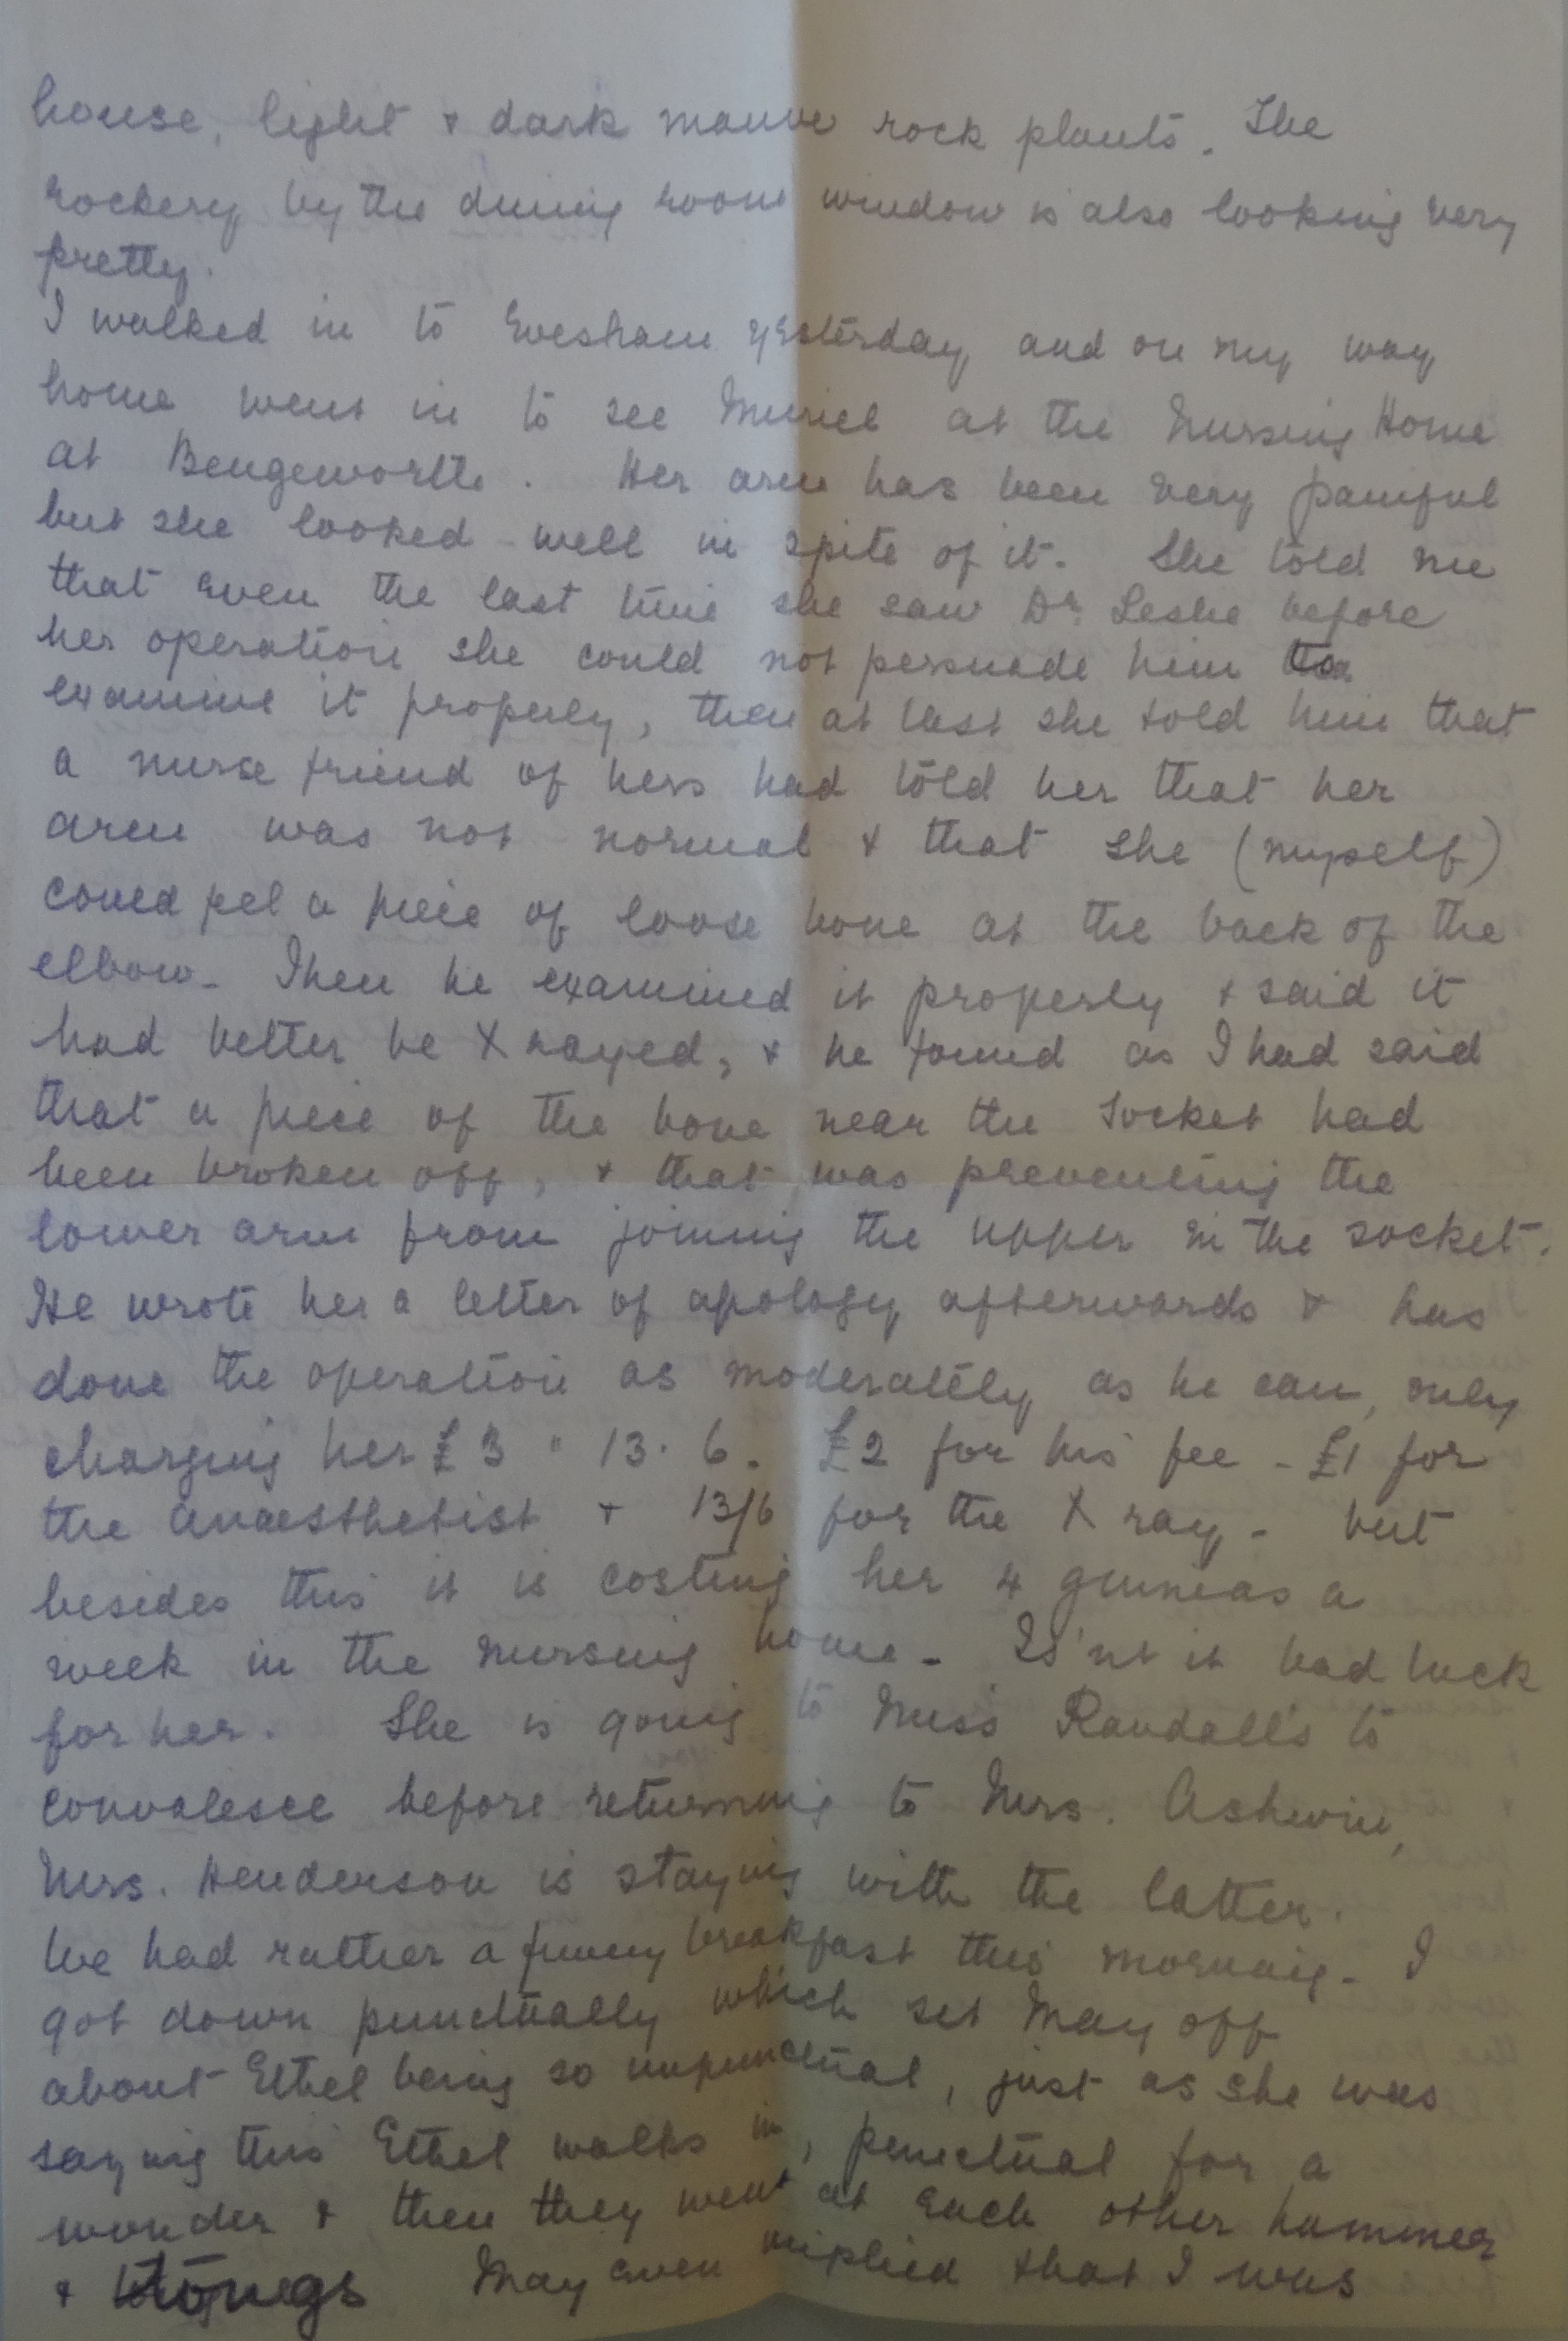 house, light + dark mauve rock plants. The
rockery by the dining room window is also looking very
pretty.
I walked in to Evesham yesterday and on my way
home went in to see Muriel at the Nursing Home
at Bengeworth. Her arm has been very painful
but she looked well in spite of it. She told me
that even the last time she saw Dr. Leslie before
her operation she could not persuade him to
examine it properly, then at last she told him that
a nurse friend of hers had told her that her
arm was not normal + that she (myself)
could feel a piece of loose bone at the back of the
elbow. Then he examined it properly + said it
had better be X rayed, + he found as I had said
that a piece of the bone near the socket had
been broken off, + that was preventing the
lower arm from joining the upper in the socket.
He wrote her a letter of apology afterwards + has
done the operation as moderately as he can, only
charging her £3 " 13. 6. £2 for his fee - £1 for
the anaesthetist + 13/6 for the X ray - but
besides this it is costing her 4 guineas a
week in the nursing home - Is'nt it bad luck
for her. She is going to Miss Randall's to
convalesce before returning to Mrs. Ashwin,
Mrs. Henderson is staying with the latter.
We had rather a funny breakfast this morning - I
got down punctually which set May off
about Ethel being so unpunctual, just as she was
saying this Ethel walks in, punctual for a
wonder + then they went at each other hammer
+ tongs May even implied that I was